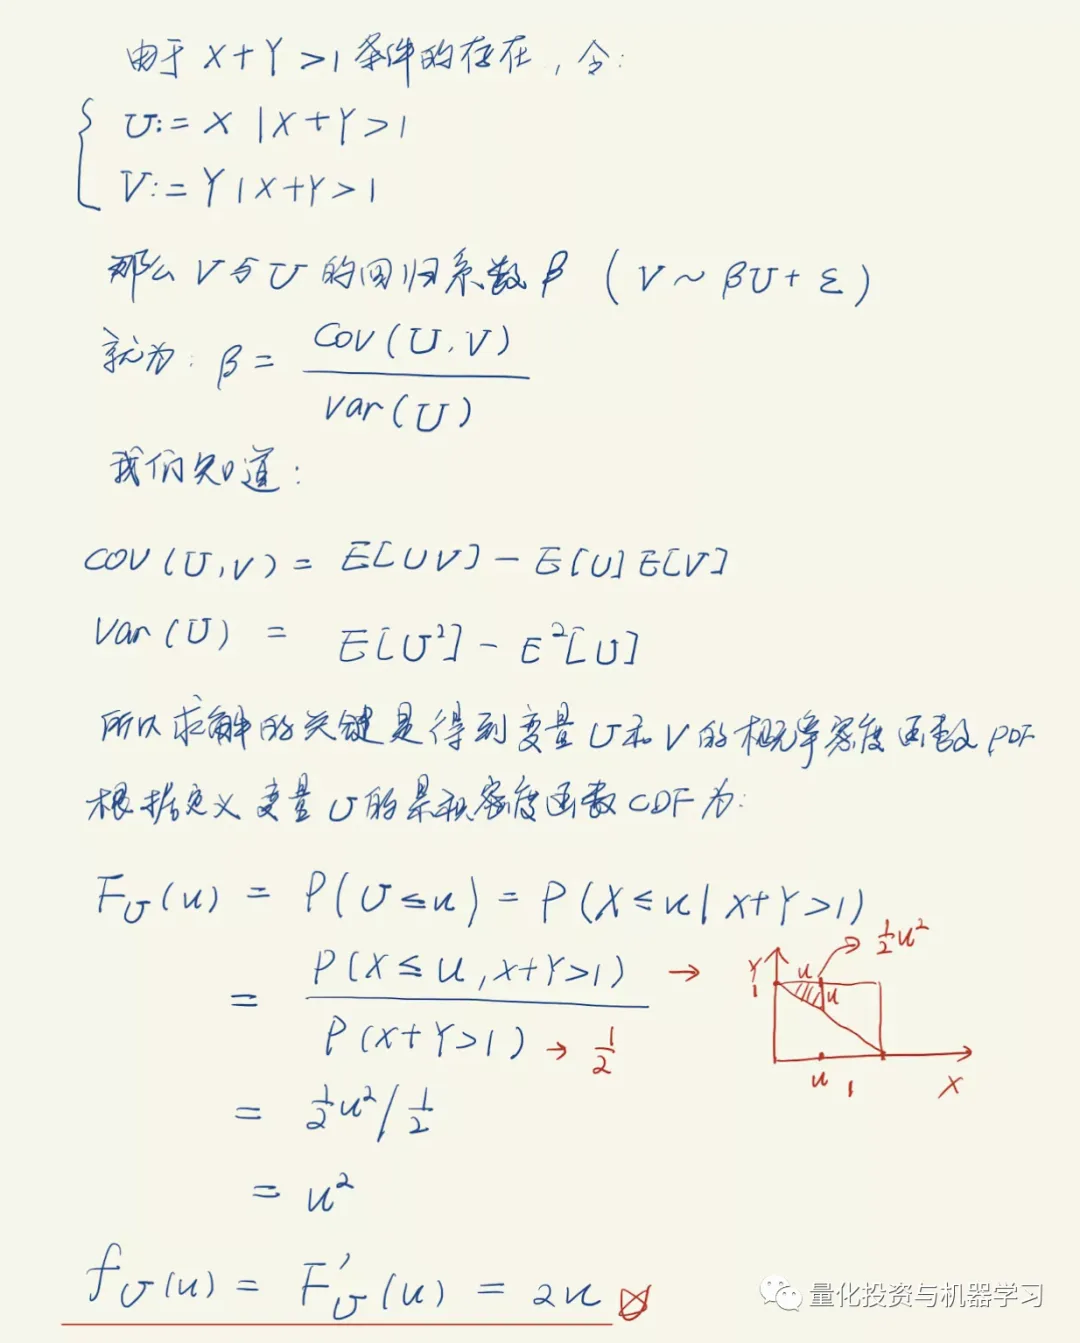 由于 X+Y>1 条件的存在,令:
U:= X | X+Y>1
V:= Y | X+Y>1
那么 V 与 U 的回归系数 β ( V ~ βU + ε )
就为: β = Cov(U,V) / Var(U)
我们知道:
COV (U,V) = E[UV] - E[U] E[V]
Var (U) = E[U²] - E²[U]
所以求解的关键是得到变量 U 和 V 的概率密度函数 PDF
根据定义 变量 U 的累积密度函数 CDF 为:
F_U(u) = P(U≤u) = P(X≤u | X+Y>1)
= P(X≤u, X+Y>1) / P(X+Y>1) → 1/2
→ Y 1 u u 1/2 u² u 1 X
= 1/2 u² / 1/2
= u²
f_U(u) = F'_U(u) = 2u
量化投资与机器学习